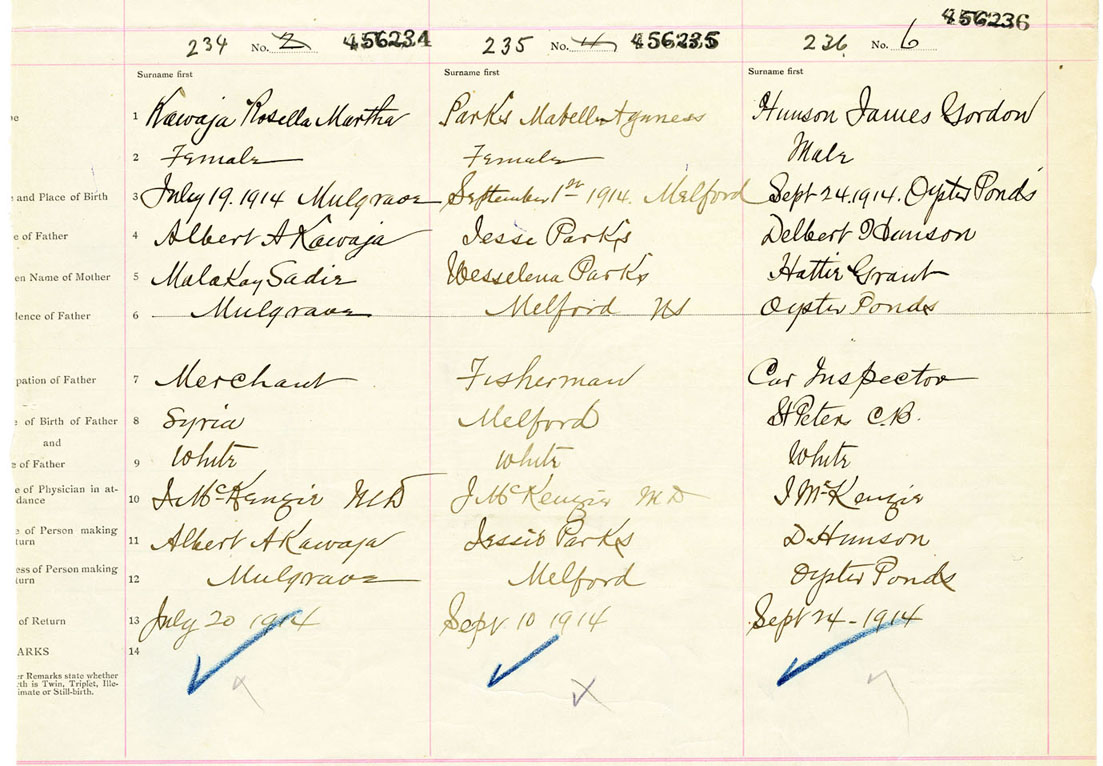 456236
234 No. 2 456234 235 No. 4 456235 236 No. 6
Surname first Surname first Surname first
1 Kawaja Rosella Martha Parks Mabelle Hunson James Gordon
2 Female Female Male
and Place of Birth 3 July 19. 1914 Mulgrave September 1st 1914. Melford Sept 24. 1914. Oyster Ponds
e of Father 4 Albert A Kawaja Jesse Parks Delbert Hunson
en Name of Mother 5 Malakay Sadie Wesselena Parks Hattie Grant
dence of Father 6 Mulgrave Melford NS Oyster Ponds
pation of Father 7 Merchant Fisherman Car Inspector
e of Birth of Father 8 Syria Melford St Peters C.B.
and
e of Father 9 White White White
e of Physician in at-
dance 10 J McKenzie M D J McKenzie M D J McKenzie
e of Person making
turn 11 Albert A Kawaja Jessie Parks D Hunson
ess of Person making
turn 12 Mulgrave Melford Oyster Ponds
of Return 13 July 20 1914 Sept 10 1914 Sept 24 - 1914
ARKS 14
er Remarks state whether
rth is Twin, Triplet, Ille-
imate or Still-birth.